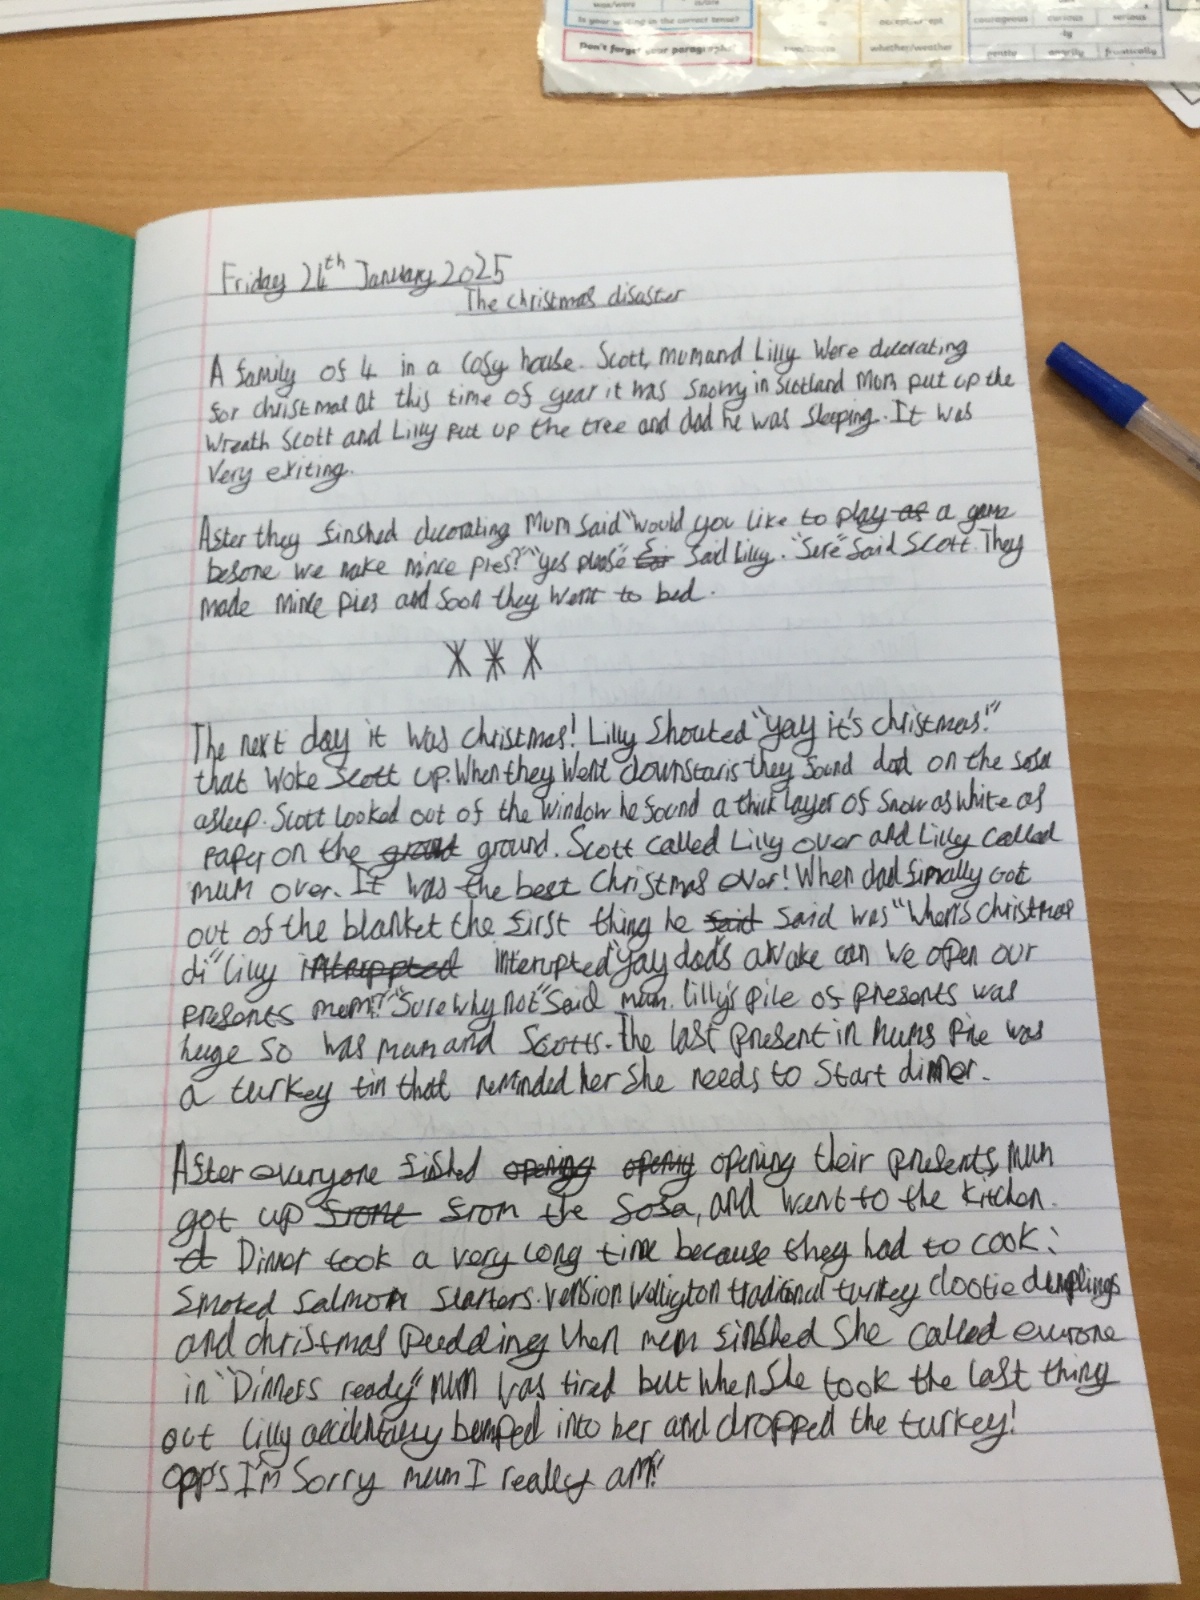 was/were
is/are
Is your writing in the correct tense?
accept/except
courageous curious serious
-ly
Don't forget your paragraphs!
whether/weather
gently angrily frantically
Friday 24th January 2025
The christmas disaster
A family of 4 in a cosy house. Scott, mum and Lilly were decorating
for christmas at this time of year it was snowy in Scotland Mum put up the
wreath Scott and Lilly put up the tree and dad he was sleeping. It was
very exiting.
After they finshed decorating Mum said "would you like to play as a game
before we make mince pies?" "yes please" said Lilly. "Sure" said Scott. They
made mince pies and soon they went to bed.
The next day it was christmas! Lilly shouted "yay it's christmas!"
that woke Scott up. When they went downstaris they found dad on the sofa
asleep. Scott looked out of the window he found a thick layer of snow as white as
paper on the ground. Scott called Lilly over and Lilly called
mum over. It was the best christmas ever! When dad finally got
out of the blanket the first thing he said said was "When's christmas
di" Lilly interupted "yay dad's awake can we open our
presents mum?" "Sure why not" said mum. Lilly's pile of presents was
huge so was mum and Scotts. The last present in mums pile was
a turkey tin that reminded her she needs to start dinner.
After everyone fished opening opening opening their presents, mum
got up from the sofa, and went to the kitchen.
Dinner took a very long time because they had to cook:
smoked salmon starters. vension welligton traditional turkey clootie dumplings
and christmas pudding when mum finshed she called everone
in "Dinners ready" mum was tired but when she took the last thing
out Lilly accidentally bumped into her and dropped the turkey!
opps I'm sorry mum I really am!"